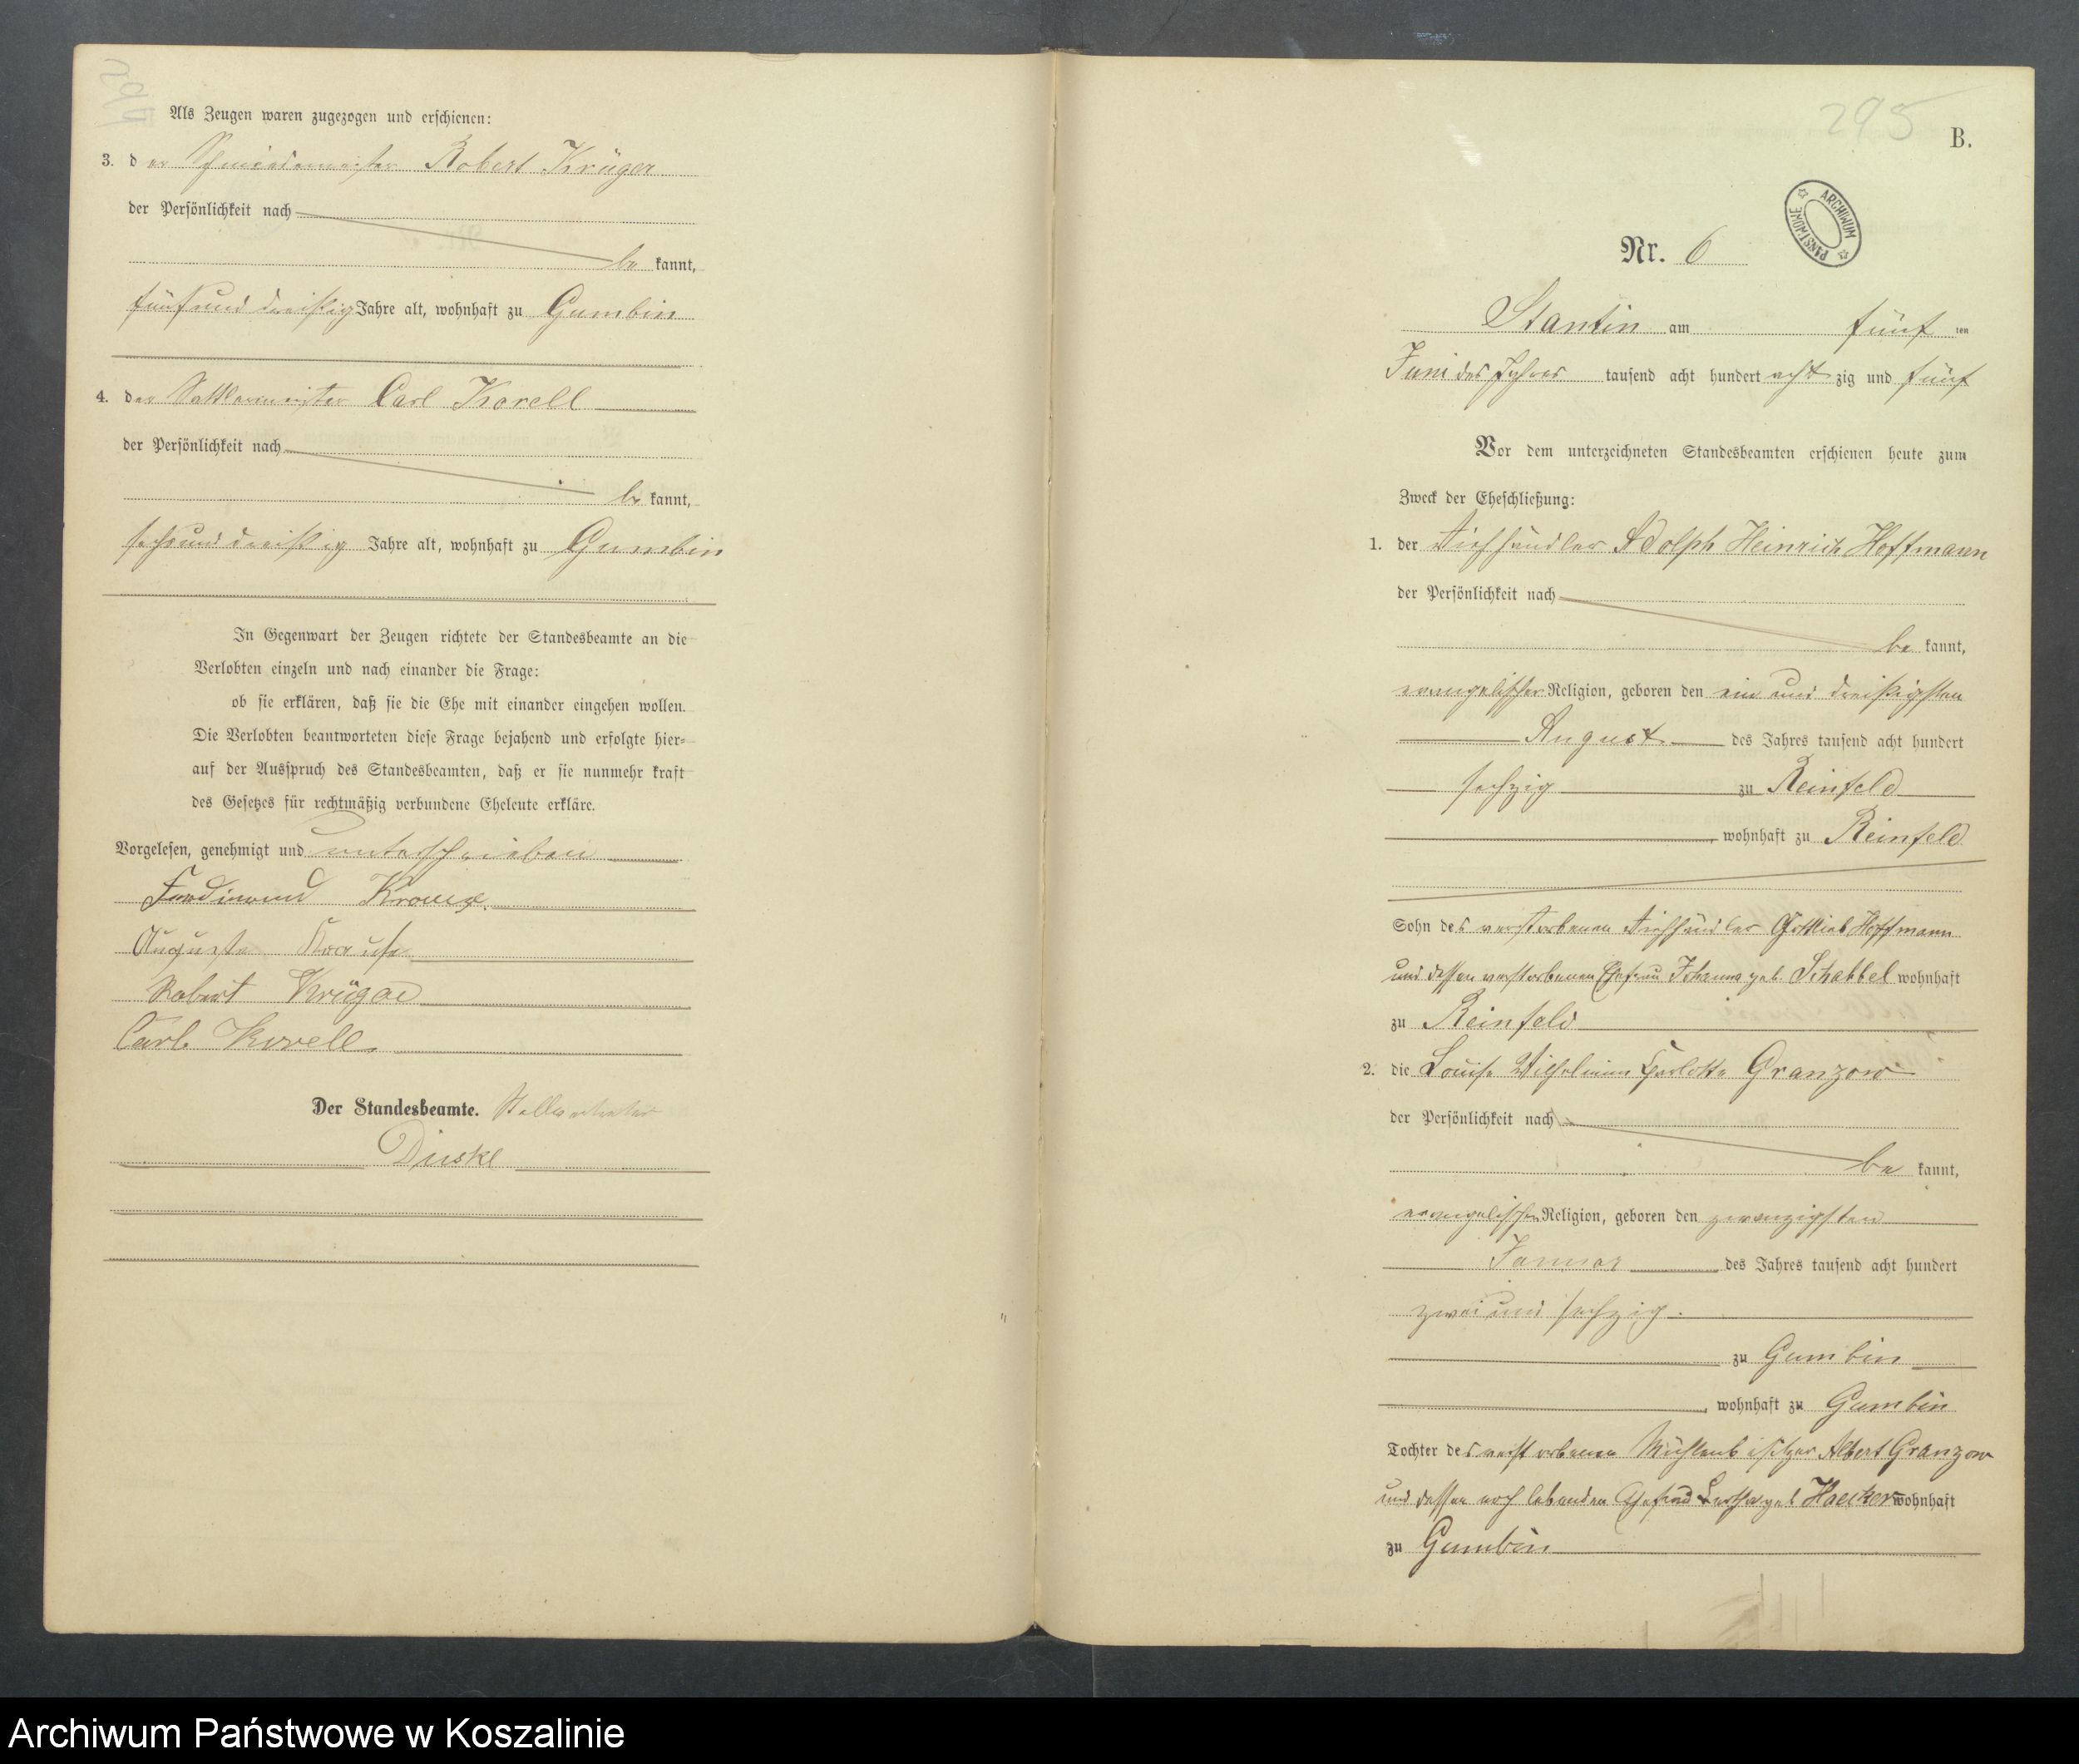 Als Zeugen waren zugezogen und erschienen:
3. der Schmiedemeister Robert Krüger
der Persönlichkeit nach
be kannt,
fünfund dreißig Jahre alt, wohnhaft zu Gumbin
4. der Sattlermeister Carl Korell
der Persönlichkeit nach
be kannt,
sechsund dreißig Jahre alt, wohnhaft zu Gumbin
In Gegenwart der Zeugen richtete der Standesbeamte an die
Verlobten einzeln und nach einander die Frage:
ob sie erklären, daß sie die Ehe mit einander eingehen wollen.
Die Verlobten beantworteten diese Frage bejahend und erfolgte hier-
auf der Ausspruch des Standesbeamten, daß er sie nunmehr kraft
des Gesetzes für rechtmäßig verbundene Eheleute erkläre.
Vorgelesen, genehmigt und unterschrieben
Ferdinand
Auguste Krause
Robert Krüger
Carl Korell
Der Standesbeamte. Stellvertreter
295
B.
ARCHIWUM PAŃSTWOWE
Nr. 6
Stantin am fünf ten
Juni des Jahres tausend acht hundert acht zig und fünf
Vor dem unterzeichneten Standesbeamten erschienen heute zum
Zweck der Eheschließung:
1. der Viehhändler Adolph Heinrich Hoffmann
der Persönlichkeit nach
be kannt,
evangelischer Religion, geboren den ein und dreißigsten
August des Jahres tausend acht hundert
sechzig zu Reinfeld
, wohnhaft zu Reinfeld
Sohn des verstorbenen Viehhändler Gottlieb Hoffmann
und dessen verstorbenen Ehefrau Johanna geb. Schabbel wohnhaft
zu Reinfeld
2. die Louise Wilhelmine Charlotte Granzow
der Persönlichkeit nach
be kannt,
evangelischer Religion, geboren den zwanzigsten
Januar des Jahres tausend acht hundert
zwei und sechzig
zu Gumbin
, wohnhaft zu Gumbin
Tochter des verstorbenen Mühlenbesitzer Albert Granzow
und dessen noch lebenden Ehefrau geb Haecker wohnhaft
zu Gumbin
Archiwum Państwowe w Koszalinie